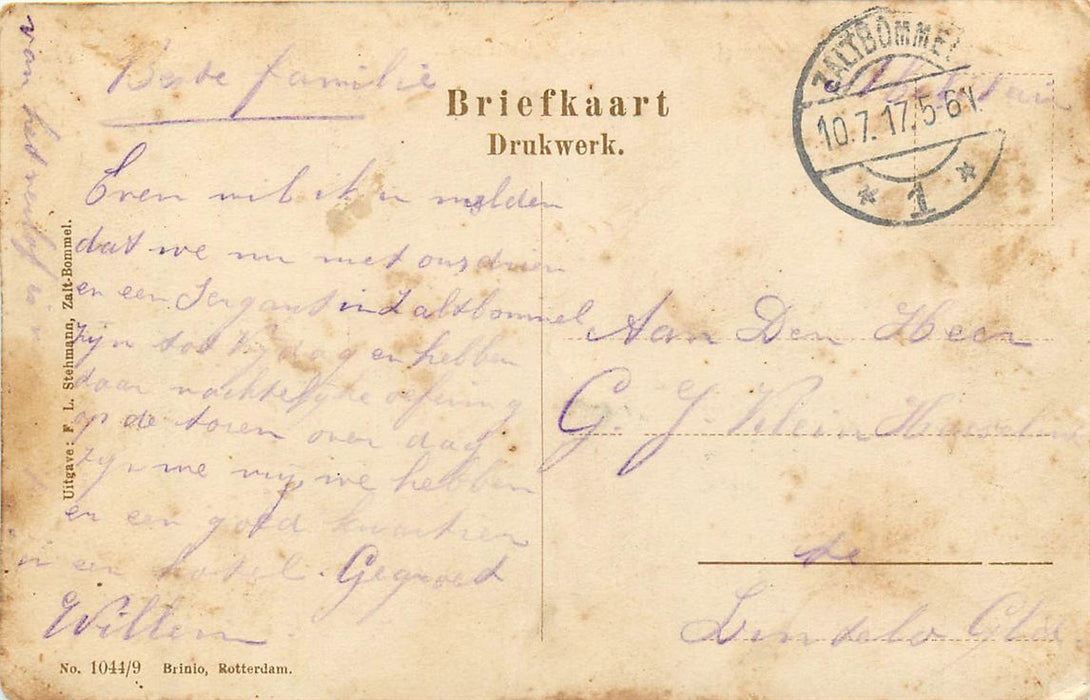 Briefkaart
Drukwerk.
ZALTBOMMEL
10.7.17.5-6V.
* 1 *
Beste familie
Even wil ik u melden
dat we nu met ons drien
en een Sergant in Zaltbommel
zijn tot Vrijdag en hebben
daar nachtelijke oefening
op de toren over dag
zijn we vrij, we hebben
er een goed kwartier
in een hotel. Gegroet
Willem
van het
Aan Den Heer
G. J. Klein
te
Lintelo Gld
Uitgave: F. L. Stehmann, Zalt-Bommel.
No. 1044/9 Brinio, Rotterdam.